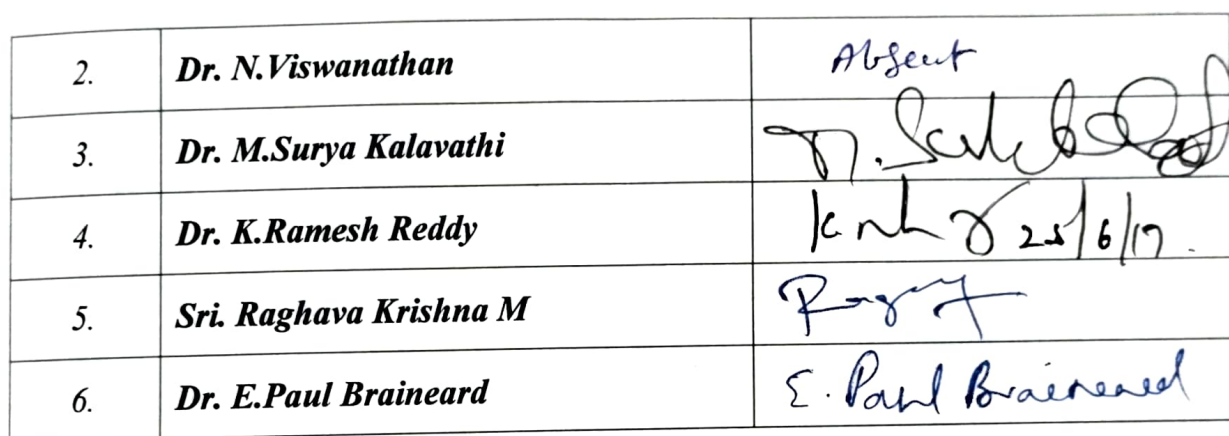 2. Dr. N.Viswanathan Absent
3. Dr. M.Surya Kalavathi
4. Dr. K.Ramesh Reddy 25/6/17.
5. Sri. Raghava Krishna M
6. Dr. E.Paul Braineard E. Paul Braineard